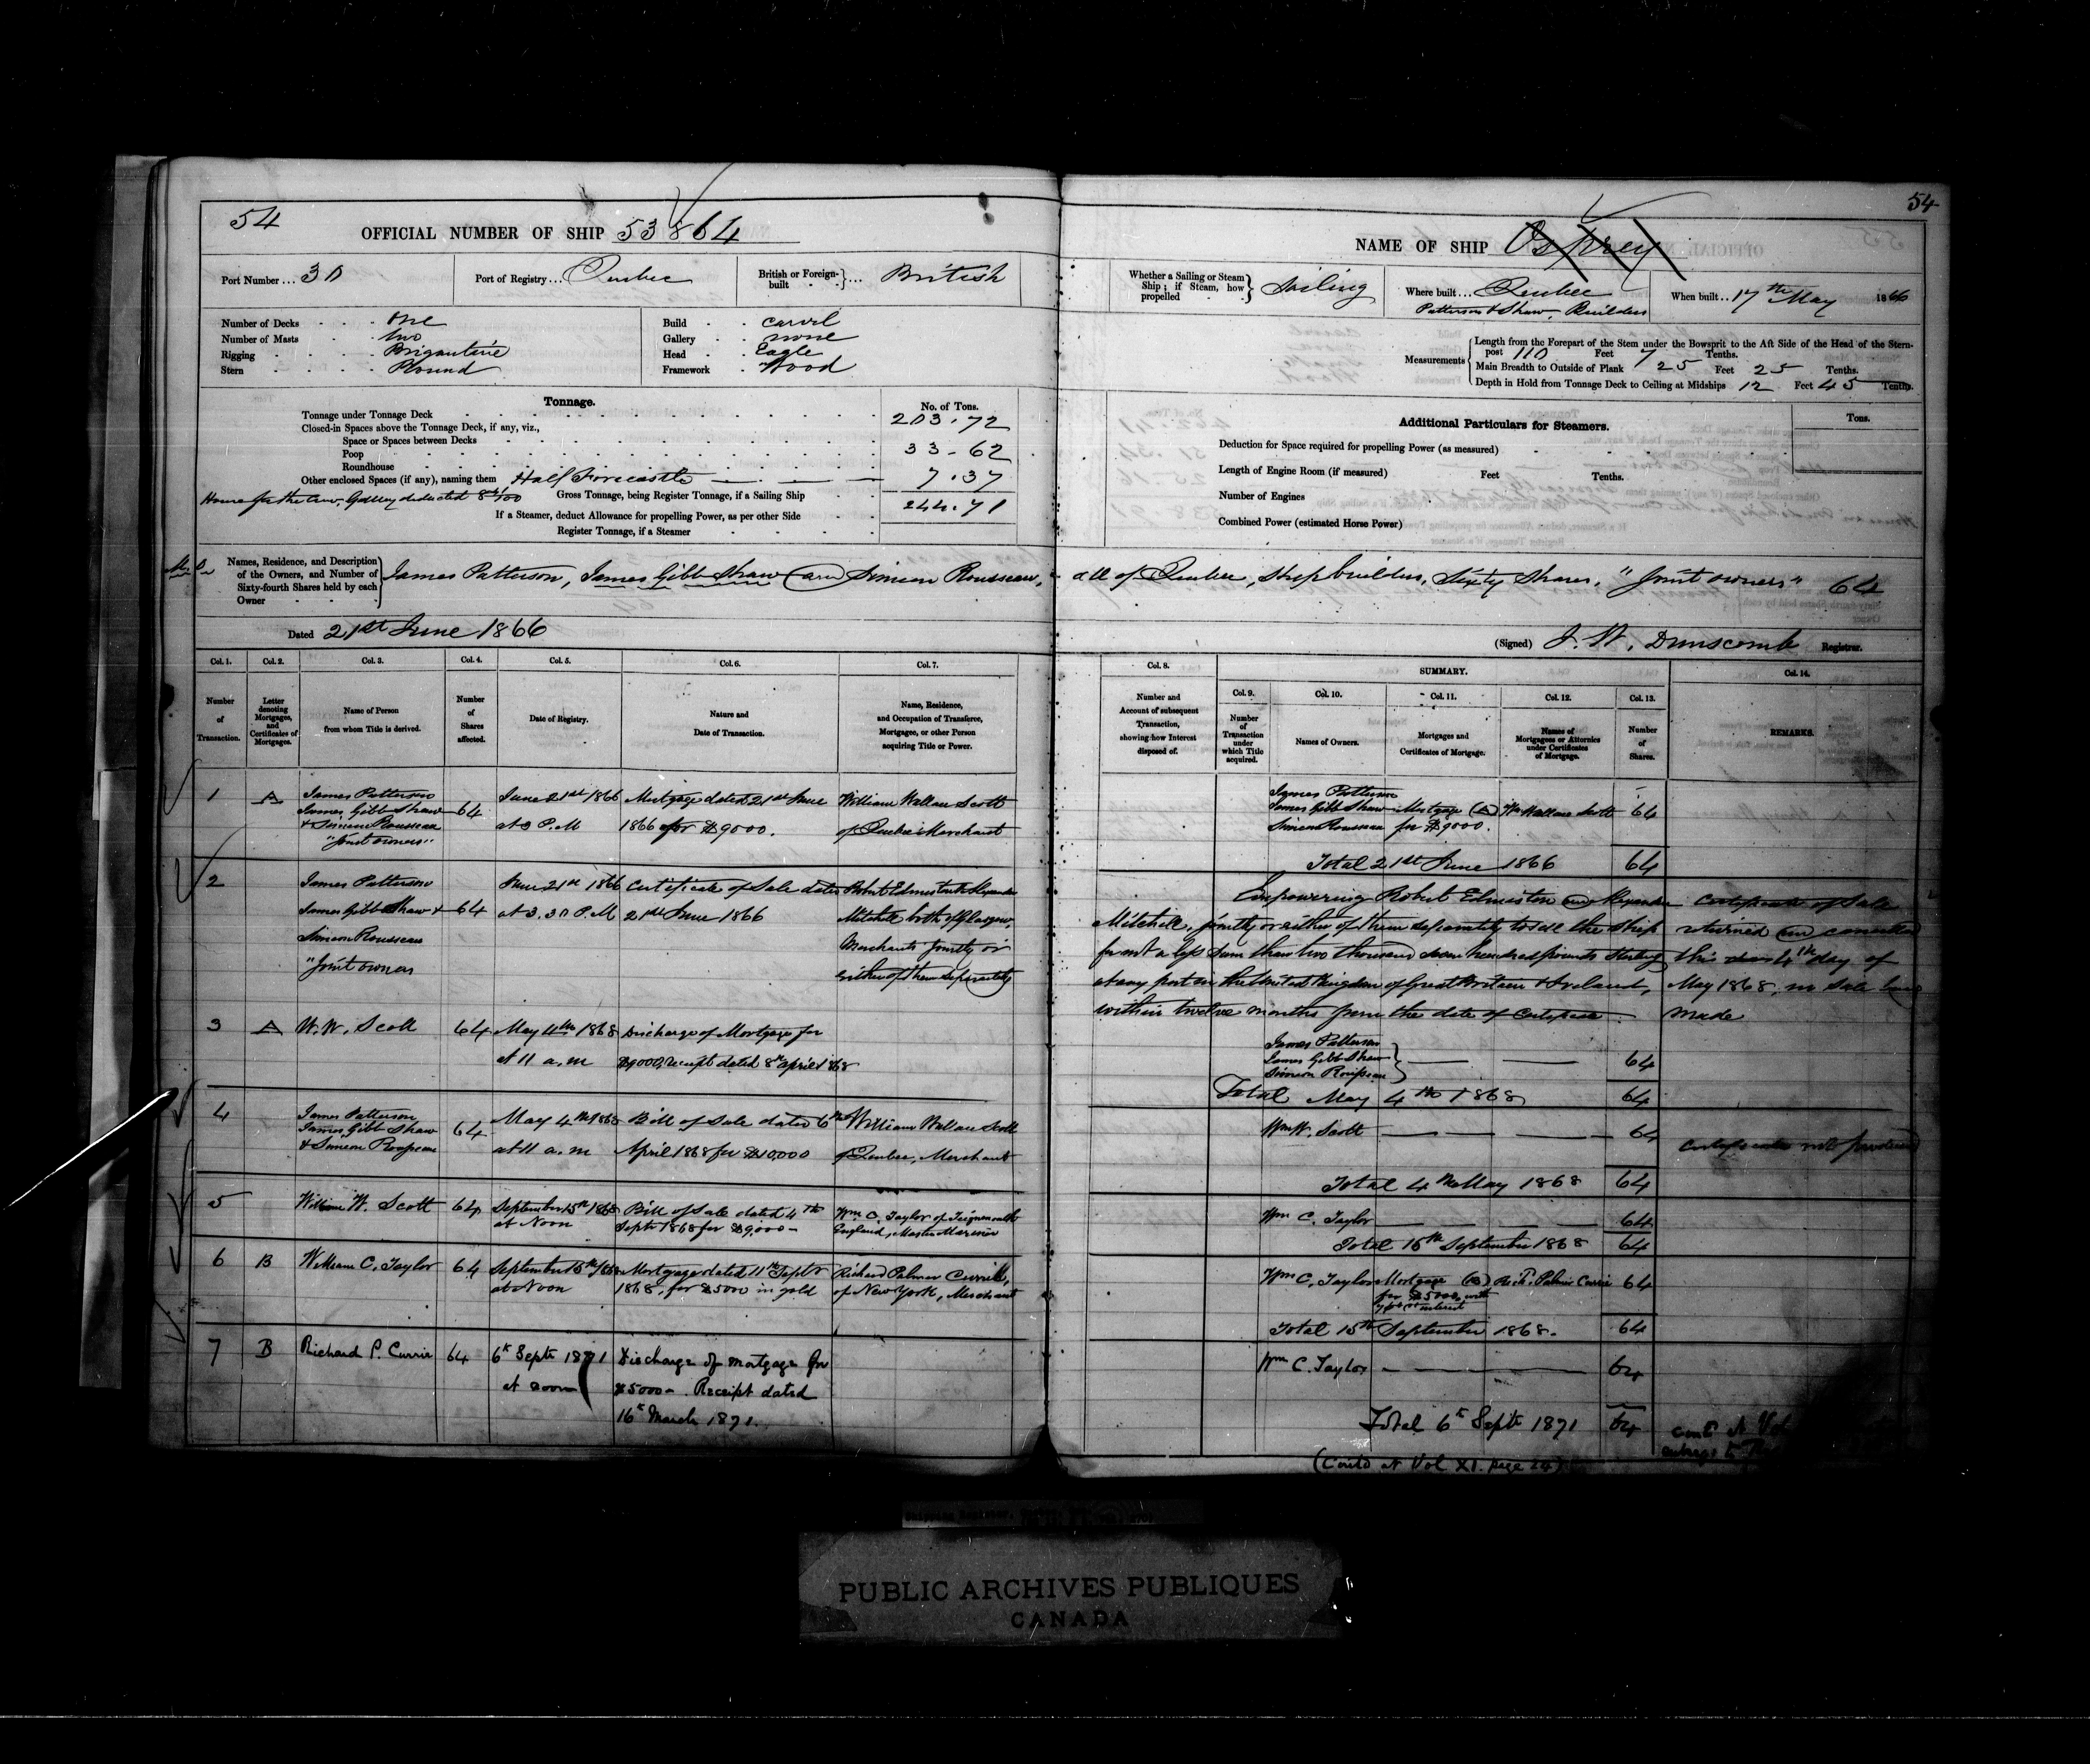 54
OFFICIAL NUMBER OF SHIP 53864
Port Number ... 30
Port of Registry ... Quebec
British or Foreign-built ... British
Number of Decks One
Number of Masts two
Rigging Brigantine
Stern Round
Build carvel
Gallery none
Head Eagle
Framework Wood
Tonnage.
No. of Tons.
Tonnage under Tonnage Deck 203.72
Closed-in Spaces above the Tonnage Deck, if any, viz.,
Space or Spaces between Decks
Poop 33-62
Roundhouse
Other enclosed Spaces (if any), naming them Half Forecastle 7.37
House for the crew, Galley deducted
Gross Tonnage, being Register Tonnage, if a Sailing Ship 244.71
If a Steamer, deduct Allowance for propelling Power, as per other Side
Register Tonnage, if a Steamer
Names, Residence, and Description of the Owners, and Number of Sixty-fourth Shares held by each Owner
James Patterson, James Gibb Shaw and Simeon Rousseau,
Dated 21st June 1866
Col. 1. Col. 2. Col. 3. Col. 4. Col. 5. Col. 6. Col. 7.
Number of Transaction.
Letter denoting Mortgages, and Certificates of Mortgages.
Name of Person from whom Title is derived.
Number of Shares affected.
Date of Registry.
Nature and Date of Transaction.
Name, Residence, and Occupation of Transferee, Mortgagee, or other Person acquiring Title or Power.
1 A James Patterson 64 June 21st 1866 Mortgage dated 21st June William Wallace Scott
James Gibb Shaw at 3 P.M 1866 for $9000. of Quebec Merchant
& Simeon Rousseau
"Joint owners"
2 James Patterson June 21st 1866 Certificate of Sale dated Robert Edmiston & Alexander
James Gibb Shaw & 64 at 3.30 P.M 21st June 1866 Mitchell both of Glasgow,
Simeon Rousseau Merchants jointly or
"Joint owners either of them separately
3 A W. W. Scott 64 May 4th 1868 Discharge of Mortgage for
at 11 a.m $9000, receipt dated 8th April 1868
4 James Patterson 64 May 4th 1868 Bill of Sale dated 6th William Wallace Scott
James Gibb Shaw at 11 a.m April 1868 for $10,000 of Quebec, Merchant
& Simeon Rousseau
5 William W. Scott 64 September 15th 1868 Bill of Sale dated 4th Wm C. Taylor of Teignmouth
at Noon Septr 1868 for $9,000- England, Master Mariner
6 B William C. Taylor 64 September 15th 1868 Mortgage dated 11th Septr Richard Palmer Currie,
at Noon 1868, for $5000 in gold of New York, Merchant
7 B Richard P. Currie 64 6th Septr 1871 Discharge of mortgage for
at noon $5000-. Receipt dated
16th March 1871.
54
NAME OF SHIP Osprey
Whether a Sailing or Steam Ship; if Steam, how propelled Sailing
Where built ... Quebec
Patterson & Shaw, Builders
When built ... 17th May 1866
Measurements
Length from the Forepart of the Stem under the Bowsprit to the Aft Side of the Head of the Stern-
post 110 Feet 7 Tenths.
Main Breadth to Outside of Plank 25 Feet 25 Tenths.
Depth in Hold from Tonnage Deck to Ceiling at Midships 12 Feet 45 Tenths.
Additional Particulars for Steamers.
Tons.
Deduction for Space required for propelling Power (as measured)
Length of Engine Room (if measured) Feet Tenths.
Number of Engines
Combined Power (estimated Horse Power)
all of Quebec, Shipbuilders, Sixty Shares, "Joint owners" 64
(Signed) J. W. Dunscomb Registrar.
Col. 8.
SUMMARY.
Col. 9. Col. 10. Col. 11. Col. 12. Col. 13. Col. 14.
Number and Account of subsequent Transaction, showing how Interest disposed of.
Number of Transaction under which Title acquired.
Names of Owners.
Mortgages and Certificates of Mortgage.
Names of Mortgagees or Attornies under Certificates of Mortgage.
Number of Shares.
REMARKS.
James Patterson
James Gibb Shaw Mortgage (A) Wm Wallace Scott 64
Simeon Rousseau for $9000.
Total 21st June 1866 64
Empowering Robert Edmiston and Alexander
Mitchell, jointly or either of them separately to sell the Ship
for not a less sum than two thousand seven hundred pounds Sterling
at any port in the United Kingdom of Great Britain & Ireland,
within twelve months from the date of Certificate.
Certificate of Sale
returned and cancelled
this 4th day of
May 1868, no sale being
made
James Patterson
James Gibb Shaw 64
Simeon Rousseau
Total May 4th 1868 64
Wm W. Scott 64
Certificate not produced
Total 4th May 1868 64
Wm C. Taylor 64
Total 15th September 1868 64
Wm C. Taylor Mortgage (B) Richd. Palmer Currie 64
for $5000, with
interest
Total 15th September 1868. 64
Wm C. Taylor 64
Total 6th Septr 1871 64
(Contd at Vol XI. page 24)
cont at Vol
PUBLIC ARCHIVES PUBLIQUES
CANADA